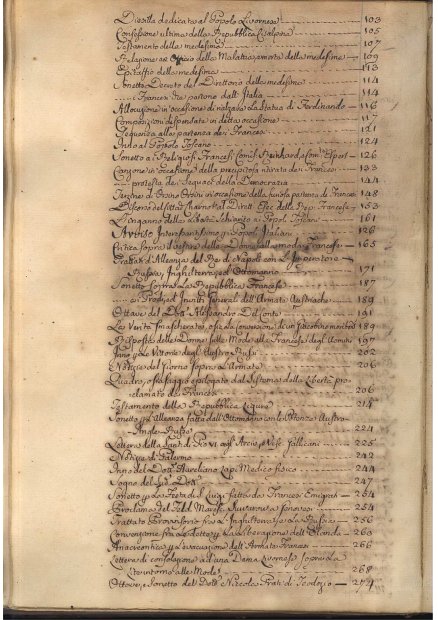 Dispsilla dedicata al Popolo Livornese 103
Confessione ultima della Repubblica Cisalpina 105
Testamento della medesima 107
Relazione ed Offizio della Malatia, e morte della medesima 109
Epitaffio della medesima 113
Sonetto Decreto del Direttorio della medesima 114
Francesi che partono dall' Italia 114
Allocuzione in occasione di rialzare la Statua di Ferdinando 116
Composizioni dispensate in detta occasione 117
Sequenza alla partenza de Francesi 121
Inno al Popolo Toscano 124
Sonetto a Religiosi Francesi 126
Canzone in occasione della precipitosa ritirata dei Francesi 133
protesta dei Seguaci della Democrazia 144
in occasione della partenza de Francesi 148
Discorso del Cittad. Dirett. Esec. della Rep. Francese 153
L'inganno della Libertà ai Popoli 161
Avviso Interessantissimo a Popoli Italiani 126
Critica sopra il vestire delle Donne alla moda Francese 165
Trattati d'Alleanza del Re di Napoli con l'Imperatore
Russia, Inghilterra, ed Ottomanno 171
Sonetto sopra la Repubblica Francese 187
ai Prodi, ed Invitti Generali dell'Armate Austriache 189
Ottave del Dott. Alessandro Del Conte 191
La Verità Smascherata, o sia la Confessione di un Giacobino 189
Risposta delle Donne sulle Mode alla Francese degli Uomini 197
Inno per le Vittorie degli Austro Russi 202
Notizie del Giorno sopra l'Armata 206
Quadro, o sia saggio epilogato del Sistema della Libertà pro-
clamato da Francesi 206
Testamento della Repubblica Ligure 214
Sonetto sull'Alleanza fatta dall'Ottomanno con le Potenze Austro-
Anglo-Russe 224
Lettera della Sant. di Pio VI agli Arciv. e Vesc. Gallicani 225
Notizie di Palermo 242
Inno del Dott. Aureliano Lapi Medico fisico 244
Sogno del Sud. Dott. 247
Sonetto per la Festa di S. Luigi fatta da Francesi Emigrati 254
Proclama del Feld Maresc. Suwarow a Genovesi 254
Trattato Provvisorio fra l'Inghilterra, e la Russia 256
Convenzione fra per la liberazione dell'Olanda 263
Anacreontica per l'evacuazione dell'Armata Francese 266
Lettera di consolazione ad una Dama Livornese sopra la
intorno alle Mode 268
Ottave, e Sonetto del Dott. Niccola Prati di Teodozio 274